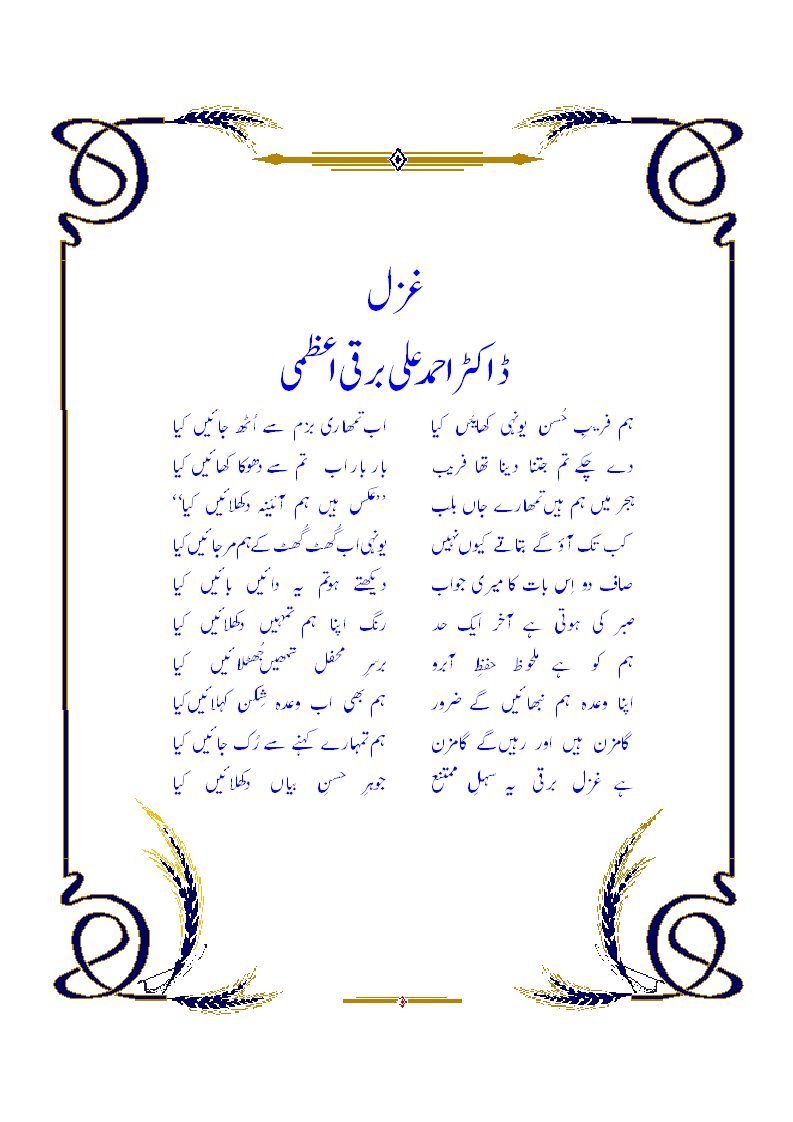 غزل
ڈاکٹر احمد علی برقی اعظمی
ہم فریبِ حُسن یونہی کھائیں کیا اب تمھاری بزم سے اُٹھ جائیں کیا
دے چکے تم جتنا دینا تھا فریب بار بار اب تم سے دھوکا کھائیں کیا
ہجر میں ہم ہیں تمھارے جاں بلب ’’عکس ہیں ہم آئینہ دکھلائیں کیا‘‘
کب تک آؤ گے بتاتے کیوں نہیں یونہی اب گُھٹ گُھٹ کے ہم مر جائیں کیا
صاف دو اِس بات کا میری جواب دیکھتے ہو تم یہ دائیں بائیں کیا
صبر کی ہوتی ہے آخر ایک حد رنگ اپنا ہم تمہیں دکھلائیں کیا
ہم کو ہے ملحوظ حفظِ آبرو برسرِ محفل تمھیں جُھٹلائیں کیا
اپنا وعدہ ہم نبھائیں گے ضرور ہم بھی اب وعدہ شِکن کہلائیں کیا
گامزن ہیں اور رہیں گے گامزن ہم تمہارے کہنے سے رُک جائیں کیا
ہے غزل برقی یہ سہلِ ممتنع جوہرِ حسنِ بیاں دکھلائیں کیا